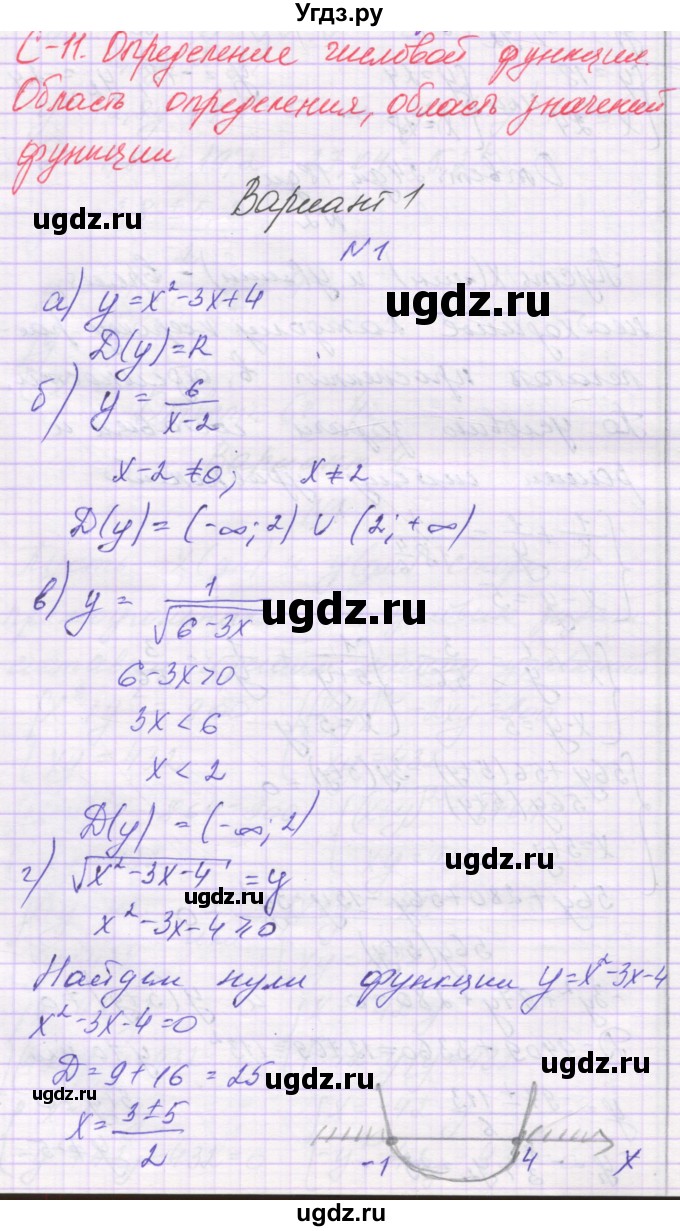 Угдз.ру
С-11. Определение числовой функции.
Область определения, область значений
функции
Вариант 1
ugdz.ru
N1
а) y = x² - 3x + 4
ugdz.ru
D(y) = R
б) y = 6/(x-2)
ugdz.ru
x - 2 ≠ 0; x ≠ 2
D(y) = (-∞; 2) ∪ (2; +∞)
в) y = 1/√(6-3x)
ugdz.ru
6 - 3x > 0
3x < 6
x < 2
D(y) = (-∞; 2)
ugdz.ru
г) √(x² - 3x - 4) = y
ugdz.ru
x² - 3x - 4 ⩾ 0
Найдем нули функции y = x² - 3x - 4
x² - 3x - 4 = 0
ugdz.ru
D = 9 + 16 = 25
ugdz.ru
x = (3 ± 5)/2
-1 4 x
ugdz.ru